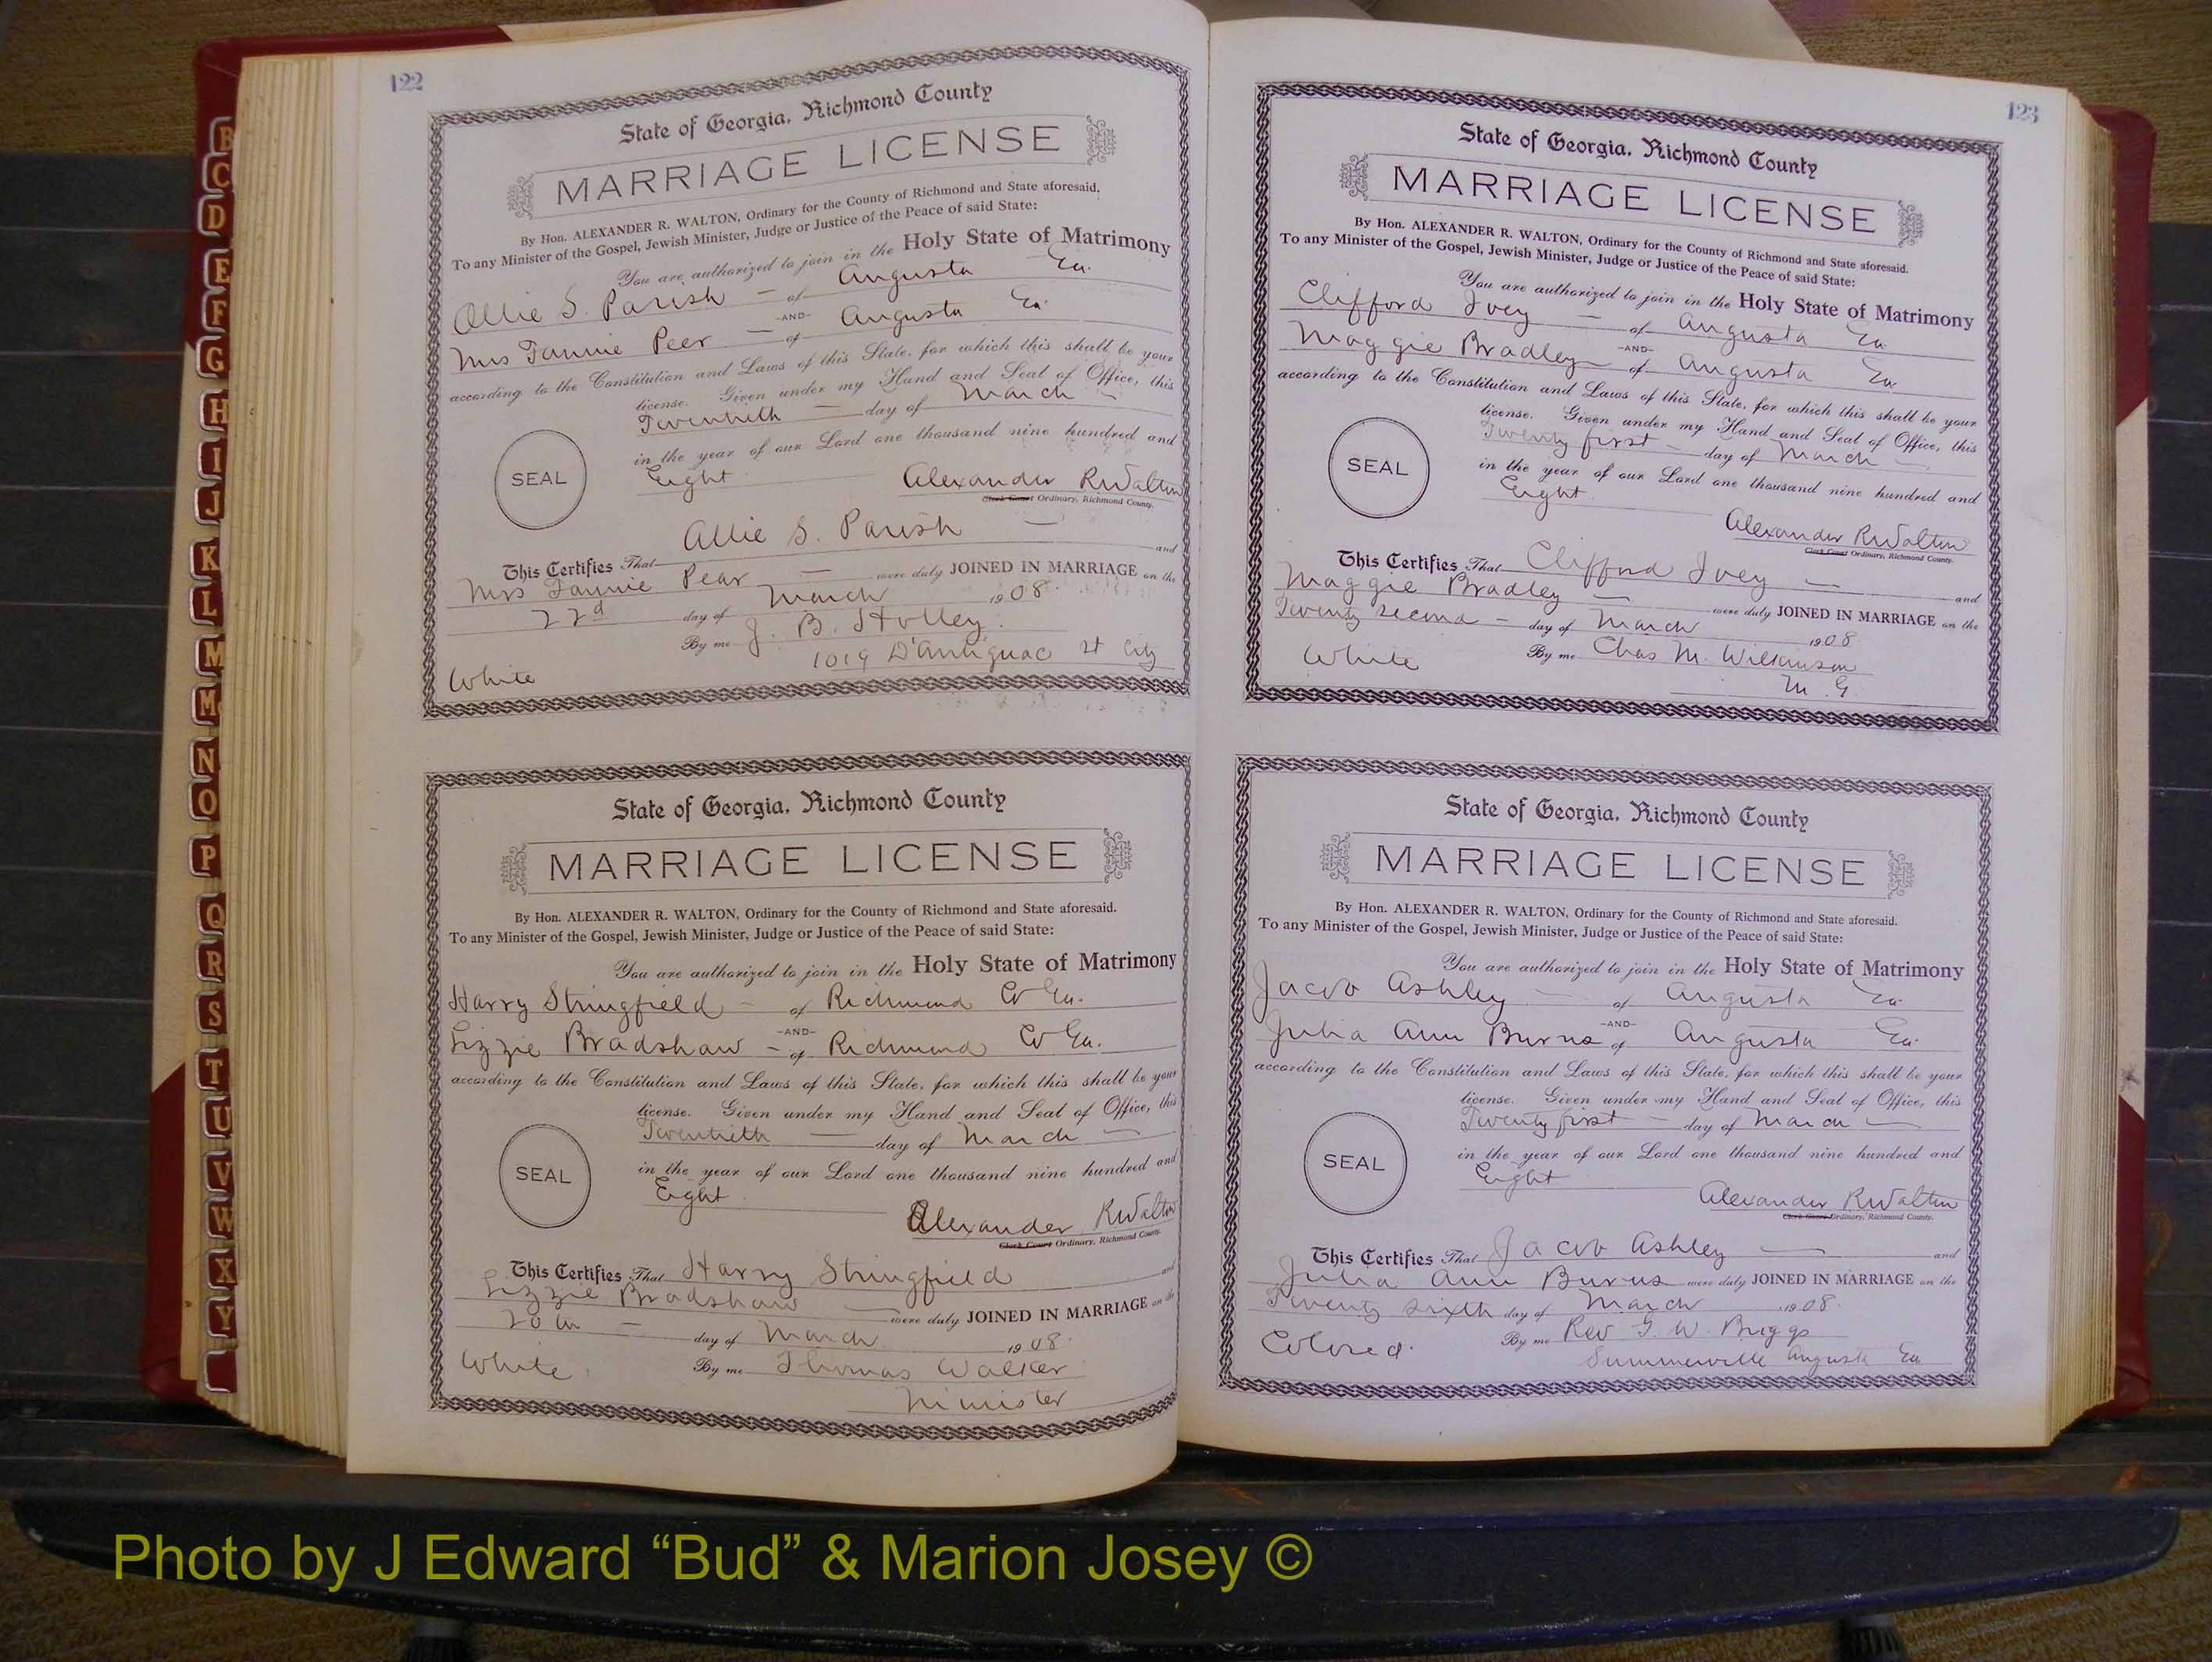 122
State of Georgia, Richmond County
MARRIAGE LICENSE
By Hon. ALEXANDER R. WALTON, Ordinary for the County of Richmond and State aforesaid.
To any Minister of the Gospel, Jewish Minister, Judge or Justice of the Peace of said State:
You are authorized to join in the Holy State of Matrimony
Allie S. Parish — of Augusta Ga.
-AND-
Mrs Fannie Peer — of Augusta Ga
according to the Constitution and Laws of this State, for which this shall be your
license. Given under my Hand and Seal of Office, this
Twentieth — day of March —
in the year of our Lord one thousand nine hundred and
Eight
SEAL
Alexander R Walton
Clerk Court Ordinary, Richmond County.
This Certifies That Allie S. Parish — and
Mrs Fannie Pear — were duly JOINED IN MARRIAGE on the
22d day of March 1908.
By me J. B. Holley.
1019 D'Antignac St City
White
State of Georgia, Richmond County
MARRIAGE LICENSE
By Hon. ALEXANDER R. WALTON, Ordinary for the County of Richmond and State aforesaid.
To any Minister of the Gospel, Jewish Minister, Judge or Justice of the Peace of said State:
You are authorized to join in the Holy State of Matrimony
Harry Stringfield — of Richmond Co Ga.
-AND-
Lizzie Bradshaw — of Richmond Co Ga.
according to the Constitution and Laws of this State, for which this shall be your
license. Given under my Hand and Seal of Office, this
Twentieth — day of March —
in the year of our Lord one thousand nine hundred and
Eight
SEAL
Alexander R Walton
Clerk Court Ordinary, Richmond County.
This Certifies That Harry Stringfield and
Lizzie Bradshaw — were duly JOINED IN MARRIAGE on the
20th — day of March 1908.
White By me Thomas Walker
Minister
123
State of Georgia, Richmond County
MARRIAGE LICENSE
By Hon. ALEXANDER R. WALTON, Ordinary for the County of Richmond and State aforesaid.
To any Minister of the Gospel, Jewish Minister, Judge or Justice of the Peace of said State:
You are authorized to join in the Holy State of Matrimony
Clifford Ivey — of Augusta Ga
-AND-
Maggie Bradley of Augusta Ga
according to the Constitution and Laws of this State, for which this shall be your
license. Given under my Hand and Seal of Office, this
Twenty first — day of March —
in the year of our Lord one thousand nine hundred and
Eight
SEAL
Alexander R Walton
Clerk Court Ordinary, Richmond County.
This Certifies That Clifford Ivey — and
Maggie Bradley — were duly JOINED IN MARRIAGE on the
Twenty second — day of March 1908
White By me Chas M. Wilkinson
M. G.
State of Georgia, Richmond County
MARRIAGE LICENSE
By Hon. ALEXANDER R. WALTON, Ordinary for the County of Richmond and State aforesaid.
To any Minister of the Gospel, Jewish Minister, Judge or Justice of the Peace of said State:
You are authorized to join in the Holy State of Matrimony
Jacob Ashley — of Augusta Ga
-AND-
Julia Ann Burns of Augusta Ga.
according to the Constitution and Laws of this State, for which this shall be your
license. Given under my Hand and Seal of Office, this
Twenty first — day of March —
in the year of our Lord one thousand nine hundred and
Eight
SEAL
Alexander R Walton
Clerk Court Ordinary, Richmond County.
This Certifies That Jacob Ashley — and
Julia Ann Burns were duly JOINED IN MARRIAGE on the
Twenty sixth day of March 1908.
Colored. By me Rev G. W. Briggs
Summerville Augusta Ga
B
C
D
E
F
G
H
I
J
K
L
M
M
N
O
P
Q
R
S
T
U
V
W
X
Y
Photo by J Edward “Bud” & Marion Josey ©